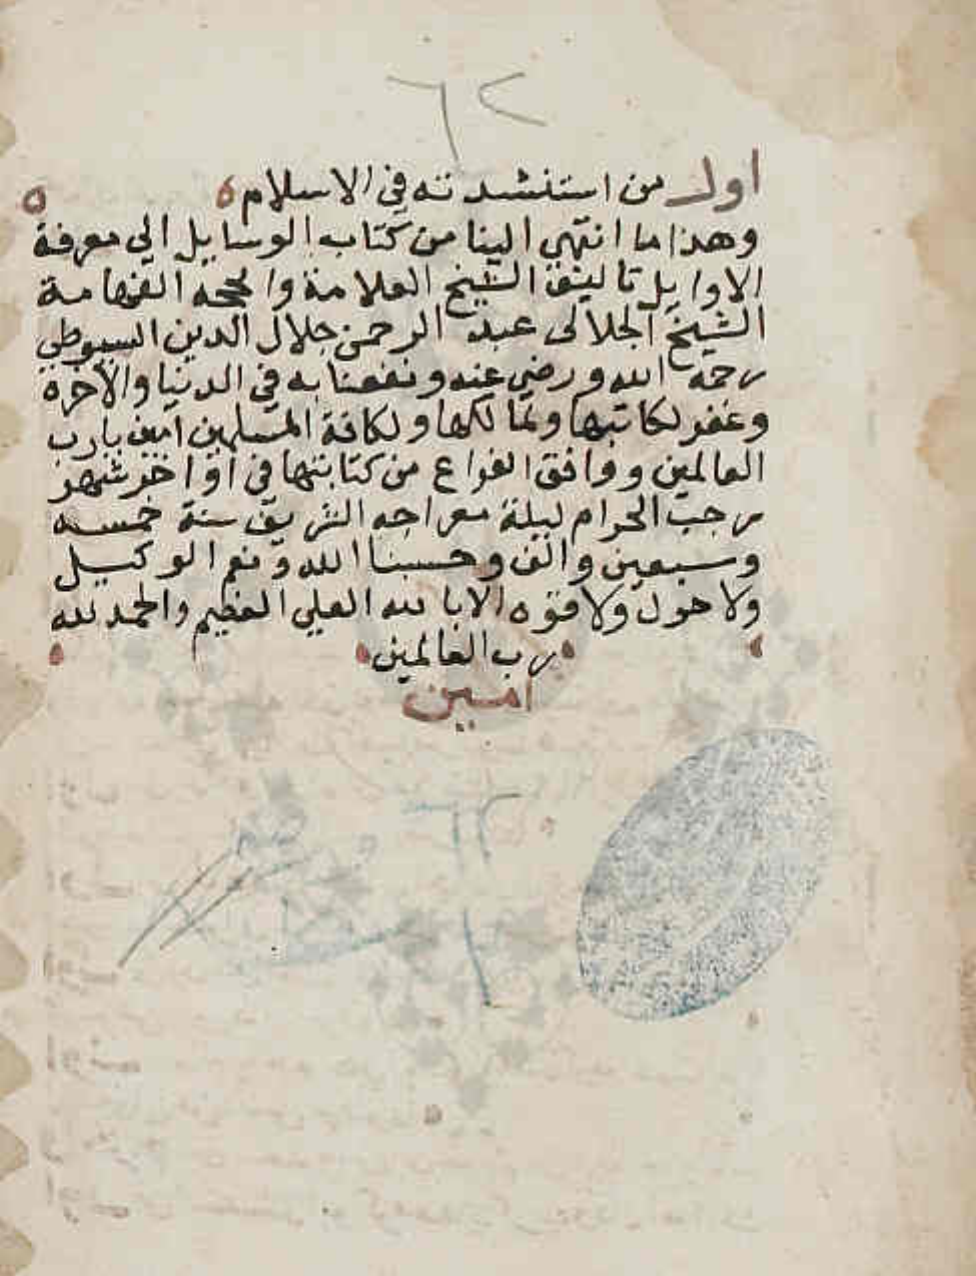 ٦٢
اول من استنشدته في الاسلام ه ه
وهذا ما انتهي الينا من كتاب الوسايل الي معرفة
الاوايل تاليف الشيخ العلامة والحجه الفهامة
الشيخ الجلالى عبد الرحمن جلال الدين السيوطي
رحمه الله ورضي عنه ونفعنا به في الدنيا والاخرة
وغفر لكاتبها ولمالكها ولكافة المسلمين آمين يارب
العالمين ووافق الفراغ من كتابتها في اواخر شهر
رجب الحرام ليلة معراجه الشريف سنة خمسه
وسبعين والف وحسبنا الله ونعم الوكيل
ولا حول ولا قوه الا بالله العلي العظيم والحمد لله
رب العالمين
امين